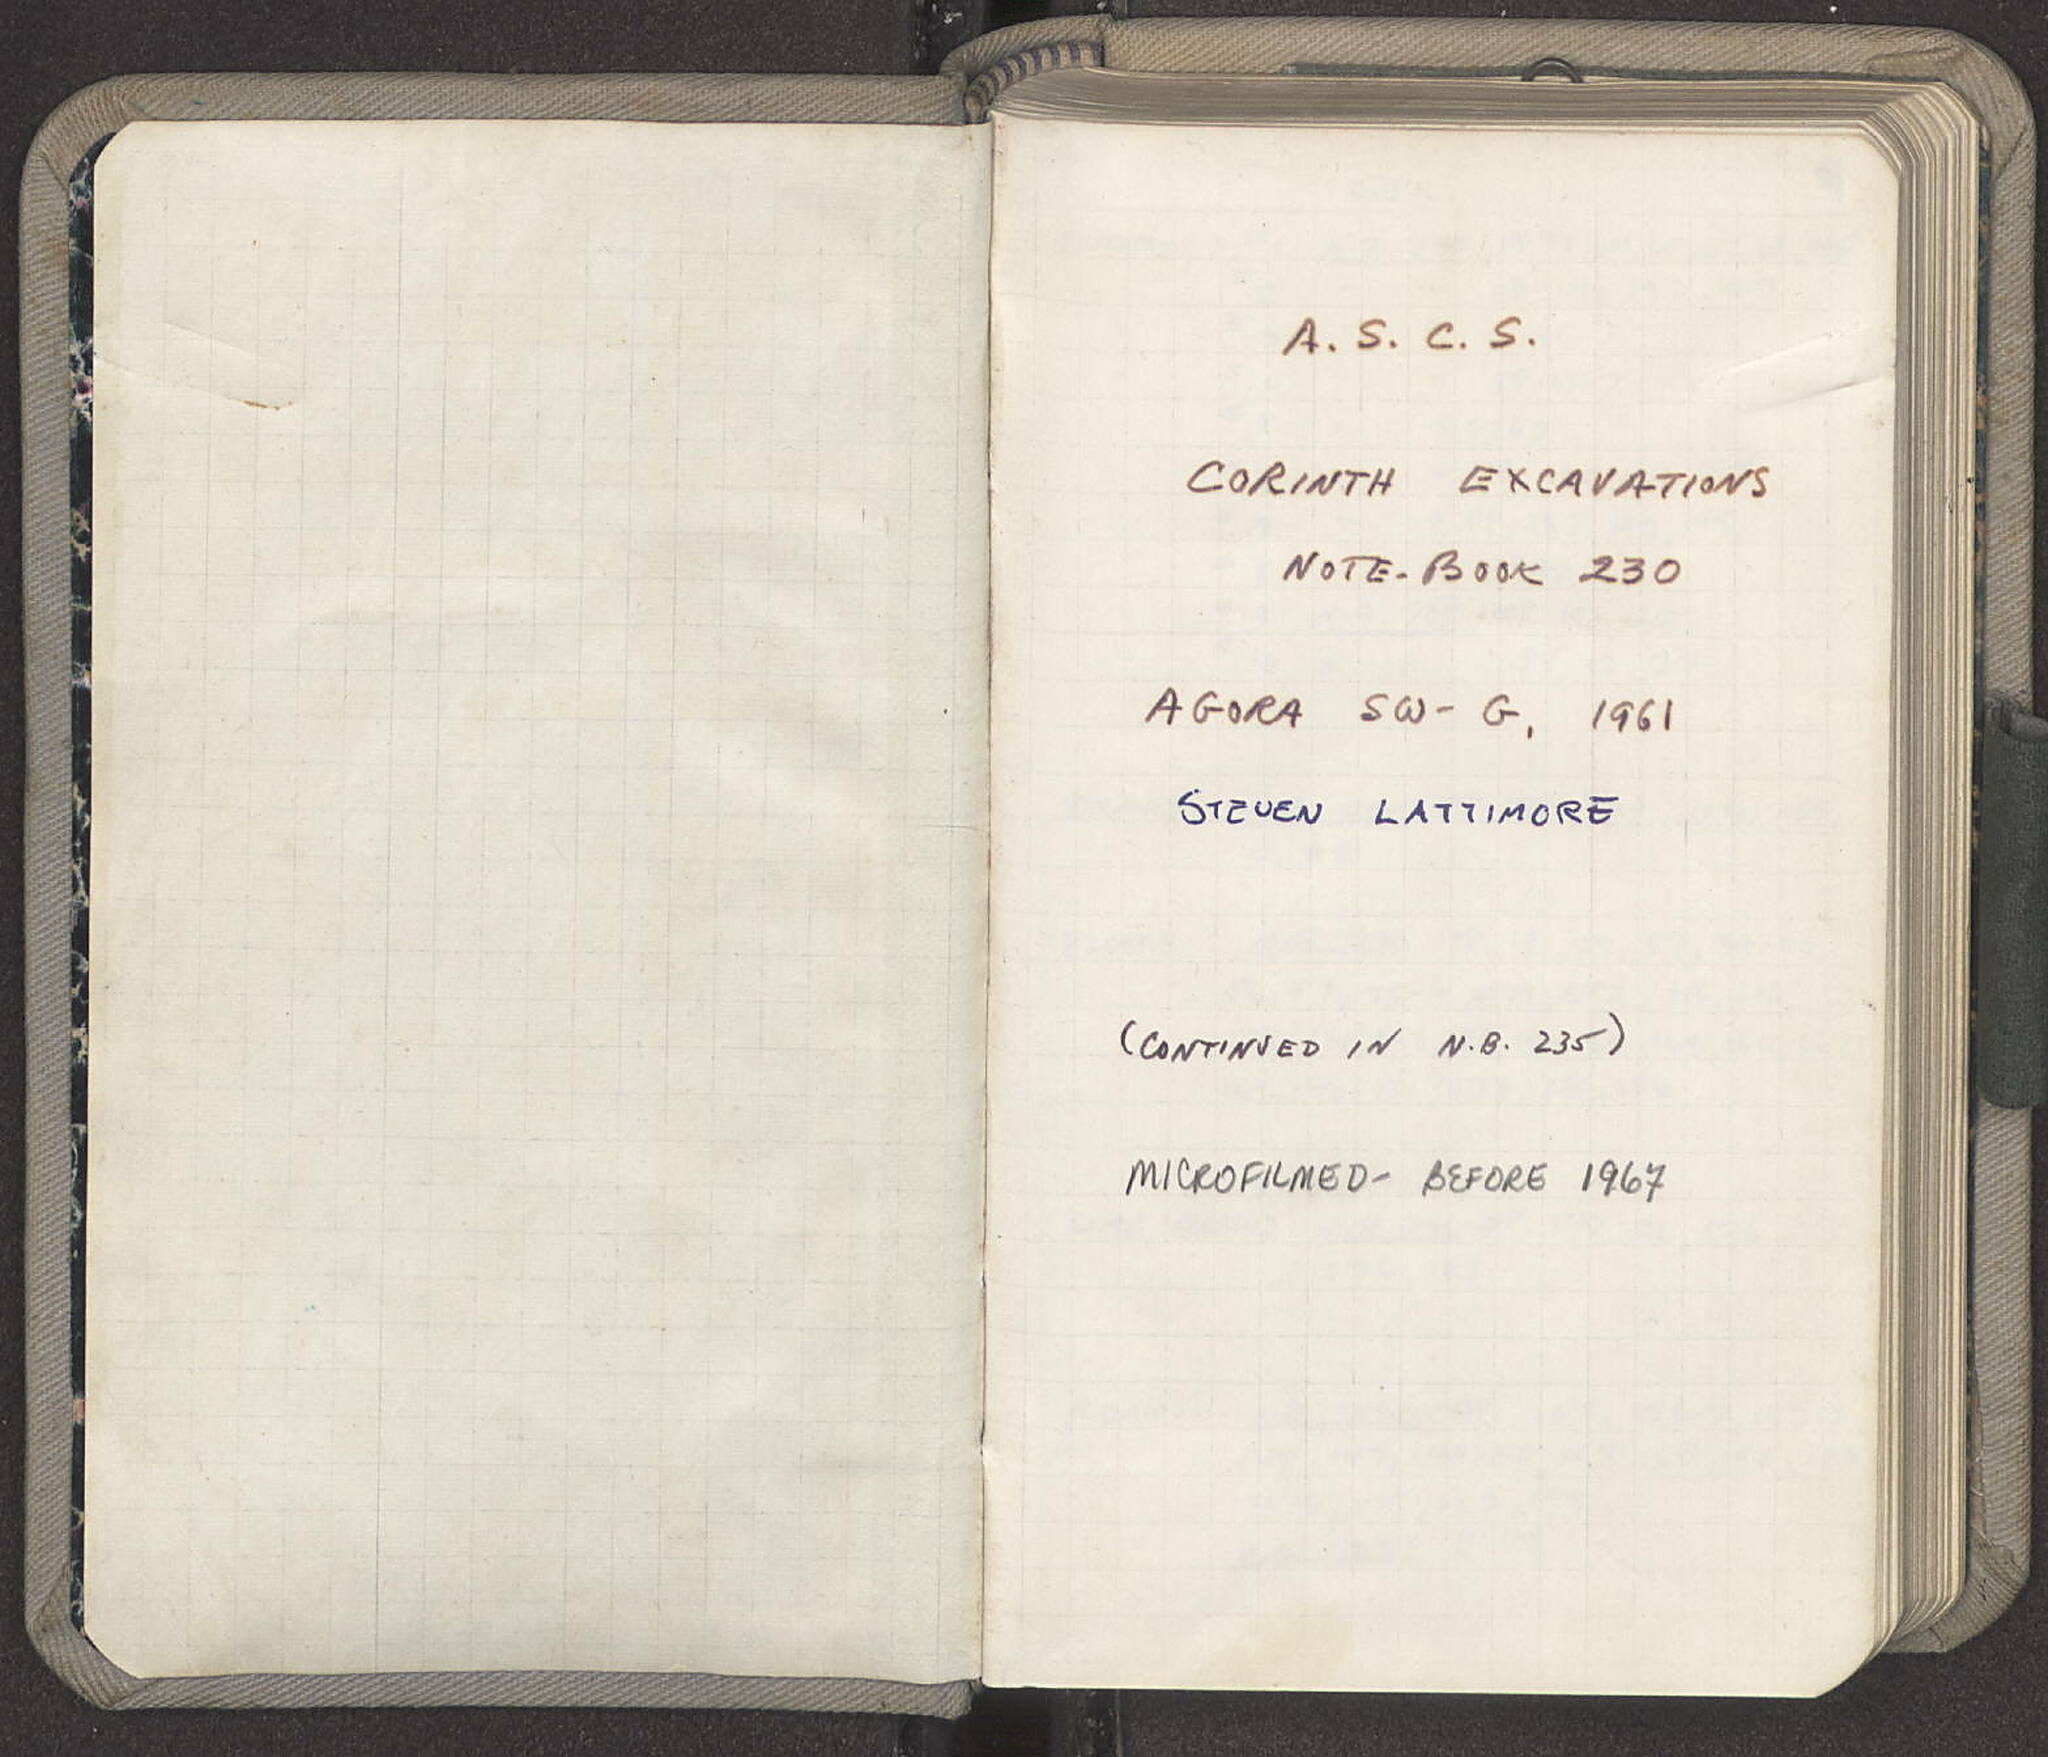 A. S. C. S.
CORINTH EXCAVATIONS
NOTE-BOOK 230
AGORA SW-G, 1961
STEVEN LATTIMORE
(CONTINUED IN N.B. 235)
MICROFILMED- BEFORE 1967